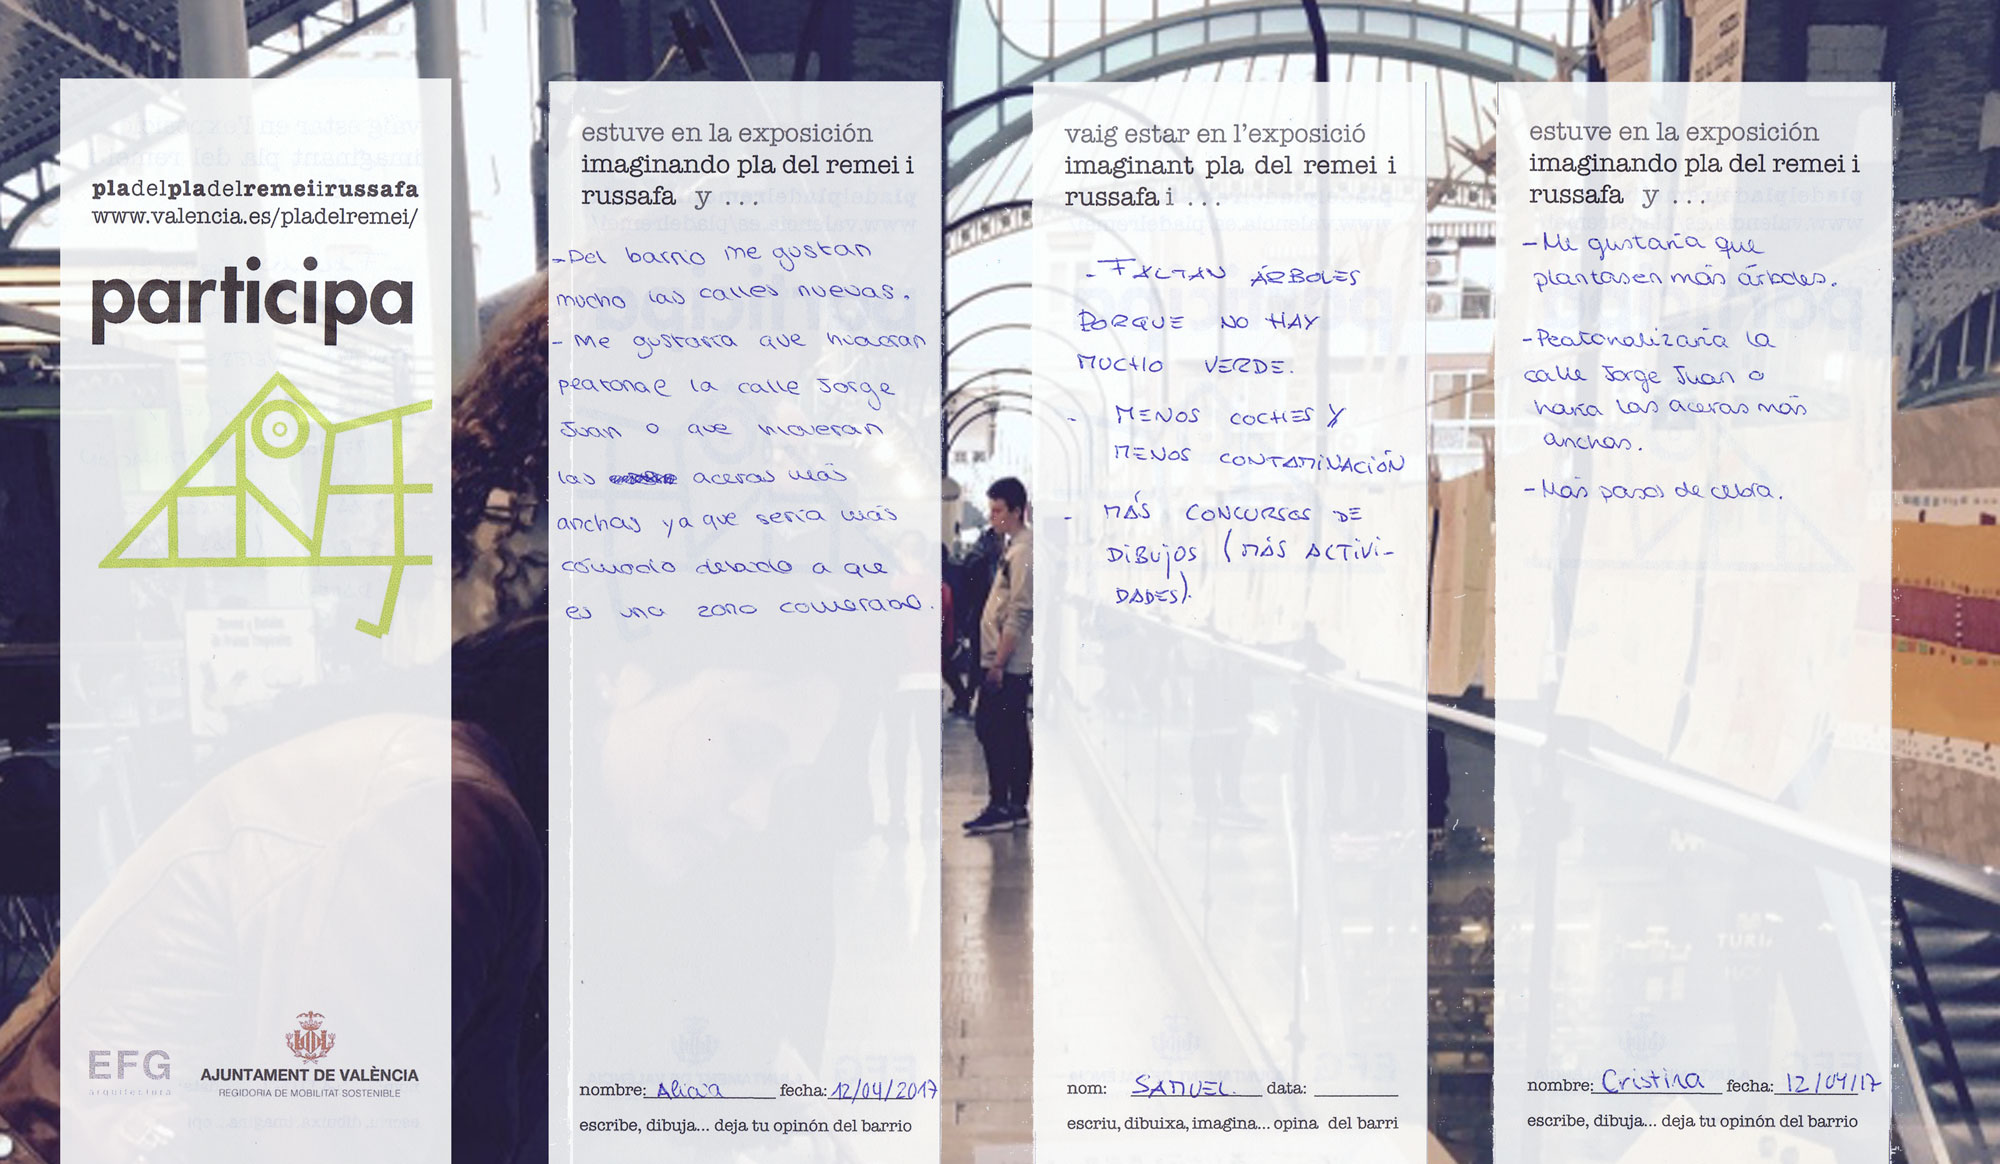 pladelpladelremeiirussafa
www.valencia.es/pladelremei/
participa
EFG
arquitectura
AJUNTAMENT DE VALÈNCIA
REGIDORIA DE MOBILITAT SOSTENIBLE
estuve en la exposición
imaginando pla del remei i
russafa y ...
- Del barrio me gustan
mucho las calles nuevas.
- Me gustaría que hicieran
peatonal la calle Jorge
Juan o que hicieran
las aceras más
anchas ya que sería más
cómodo debido a que
es una zona comercial.
nombre: Alicia fecha: 12/04/2017
escribe, dibuja... deja tu opinón del barrio
vaig estar en l'exposició
imaginant pla del remei i
russafa i ...
- FALTAN ÁRBOLES
PORQUE NO HAY
MUCHO VERDE.
- MENOS COCHES Y
MENOS CONTAMINACIÓN
- MÁS CONCURSOS DE
DIBUJOS (MÁS ACTIVI-
DADES).
nom: SAMUEL data:
escriu, dibuixa, imagina... opina del barri
estuve en la exposición
imaginando pla del remei i
russafa y ...
- Me gustaría que
plantasen más árboles.
- Peatonalizaría la
calle Jorge Juan o
haría las aceras más
anchas.
- Más pasos de cebra.
nombre: Cristina fecha: 12/04/17
escribe, dibuja... deja tu opinón del barrio